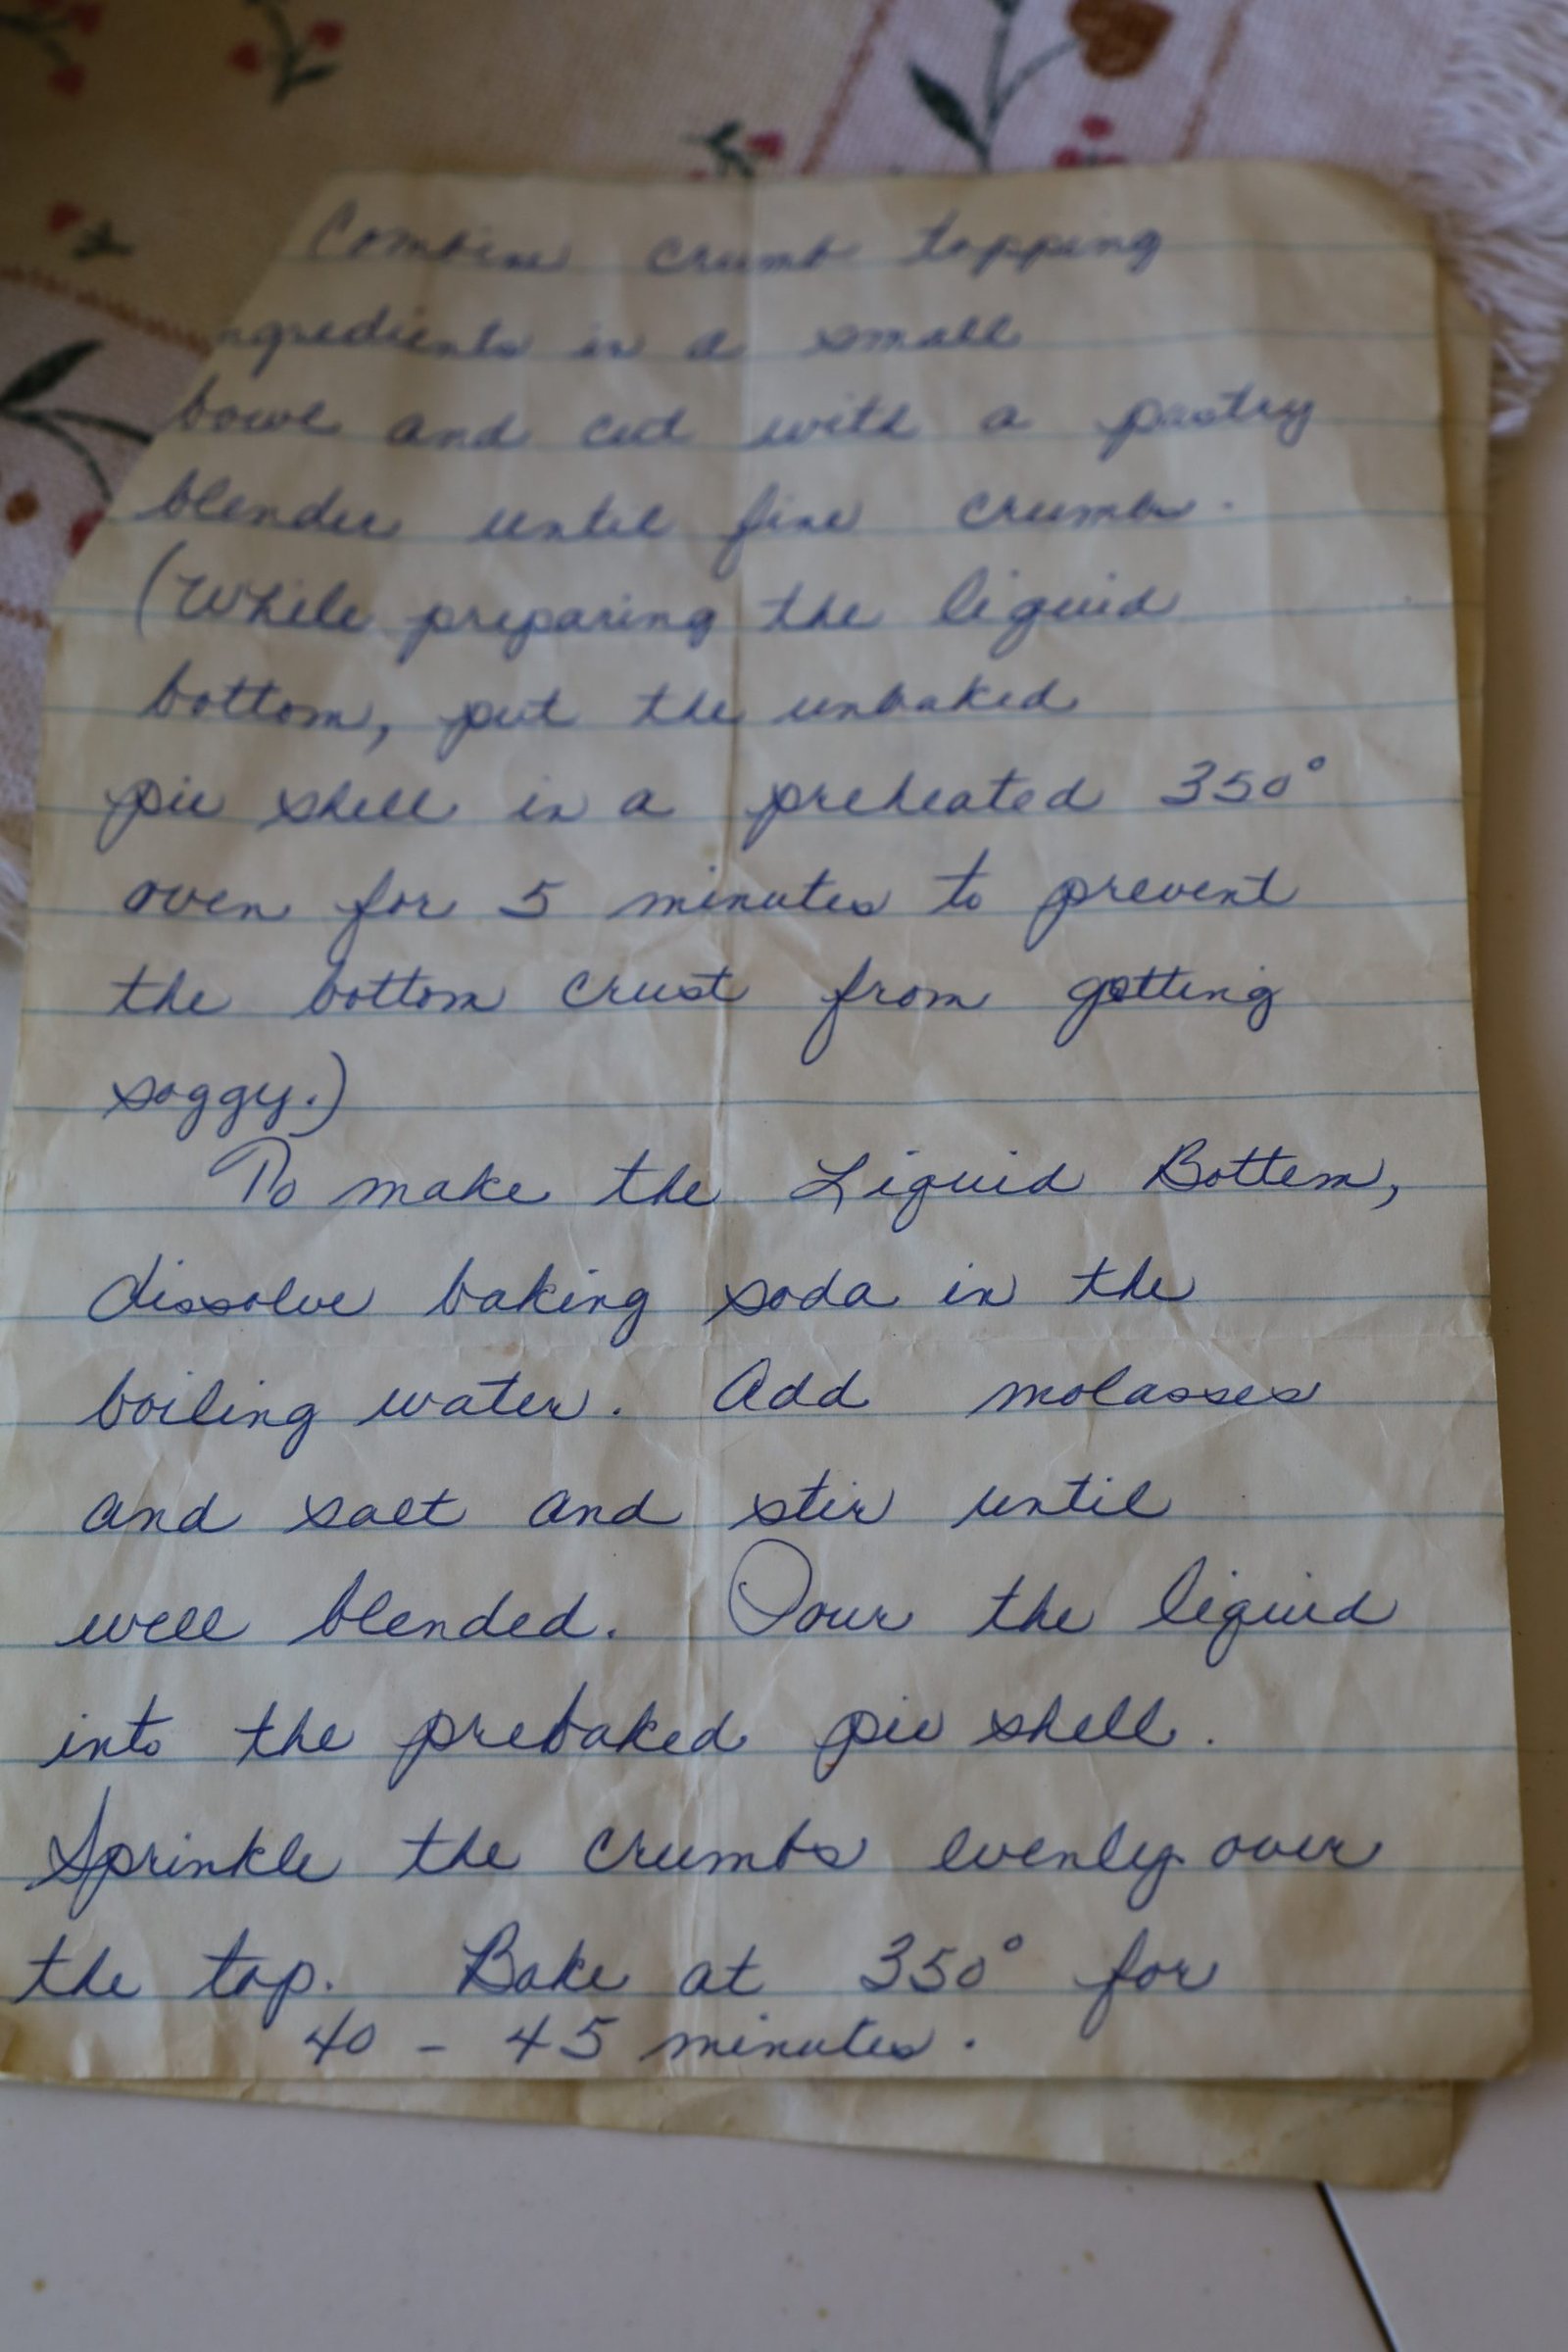 Combine crumb topping
ngredients in a small
bowl and cut with a pastry
blender until fine crumbs.
(While preparing the liquid
bottom, put the unbaked
pie shell in a preheated 350°
oven for 5 minutes to prevent
the bottom crust from getting
soggy.)
To make the Liquid Bottom,
dissolve baking soda in the
boiling water. Add molasses
and salt and stir until
well blended. Pour the liquid
into the prebaked pie shell.
Sprinkle the crumbs evenly over
the top. Bake at 350° for
40 - 45 minutes.